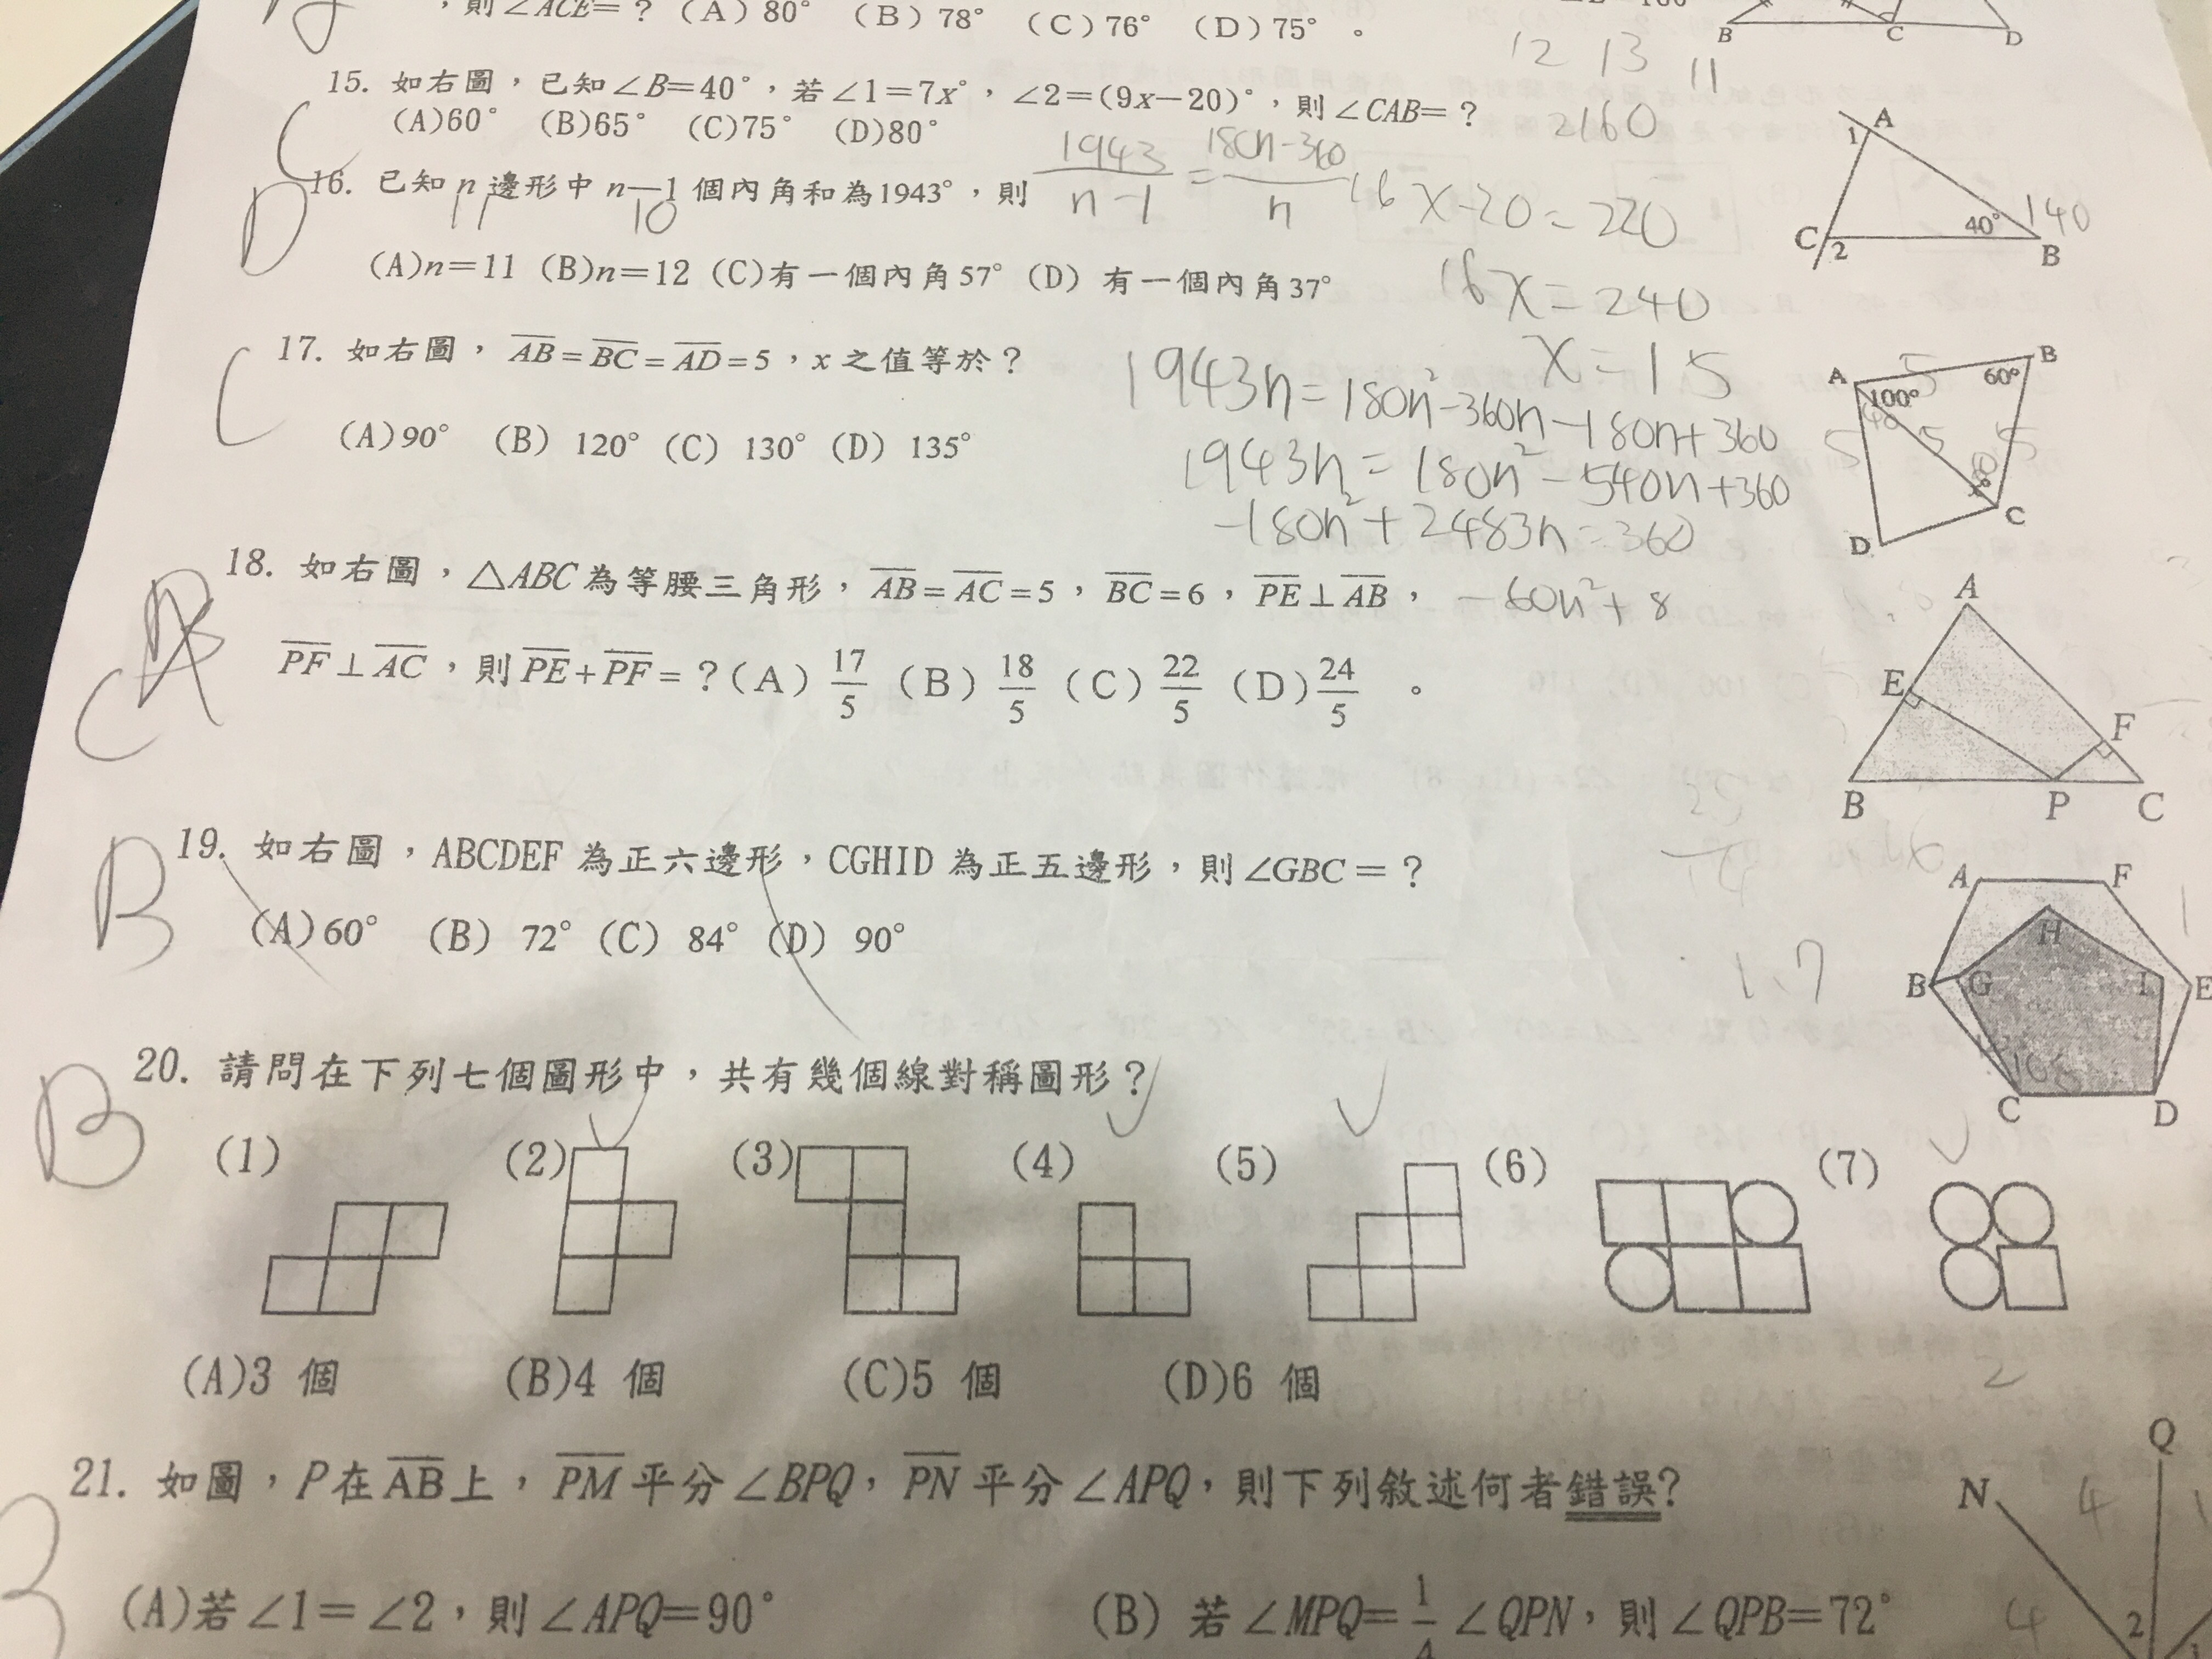 ，則∠ACE=？（A）80°（B）78°（C）76°（D）75°。
B C D
12 13 11
15. 如右圖，已知∠B=40°，若∠1=7x°，∠2=(9x−20)°，則∠CAB=？
2160
(A)60° (B)65° (C)75° (D)80°
C
A 1 C 2 40° B 140
16. 已知 n 邊形中 n−1 個內角和為1943°，則
11 10
1943/n−1 = 180n−360/n
16x−20=220
D
(A)n=11 (B)n=12 (C)有一個內角57° (D) 有一個內角37°
16x=240
x=15
17. 如右圖，AB=BC=AD=5，x 之值等於？
C
1943n=180n²−360n−180n+360
(A)90° (B) 120° (C) 130° (D) 135°
1943n=180n²−540n+360
−180n²+2483n=360
A 5 B 60° 100° 40 5 5 5 x° C D
18. 如右圖，△ABC為等腰三角形，AB=AC=5，BC=6，PE⊥AB，
−60n²+8
PF⊥AC，則PE+PF=？(A) 17/5 (B) 18/5 (C) 22/5 (D) 24/5 。
C
A E F B P C
19. 如右圖，ABCDEF 為正六邊形，CGHID 為正五邊形，則∠GBC=？
B
(A)60° (B) 72° (C) 84° (D) 90°
1.7
A F H B G I E C D
108
20. 請問在下列七個圖形中，共有幾個線對稱圖形？
B
(1) (2) (3) (4) (5) (6) (7)
(A)3 個 (B)4 個 (C)5 個 (D)6 個
21. 如圖，P在AB上，PM平分∠BPQ，PN平分∠APQ，則下列敘述何者錯誤?
Q N 4 4 2 1
(A)若∠1=∠2，則∠APQ=90° (B) 若∠MPQ=1/4∠QPN，則∠QPB=72°